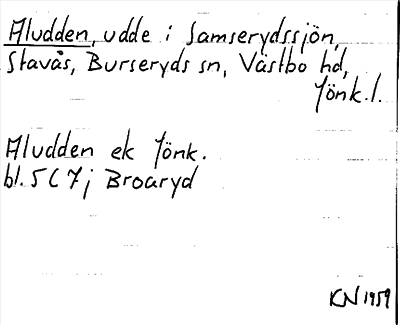 Aludden, udde i Samserydssjön,
Stavås, Burseryds sn, Västbo hd,
Jönk.l.
Aludden ek Jönk.
bl. 5 C 7 j Broaryd
KN 1959